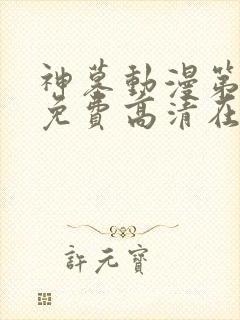 神墓動漫第
免費高清在
許元寶